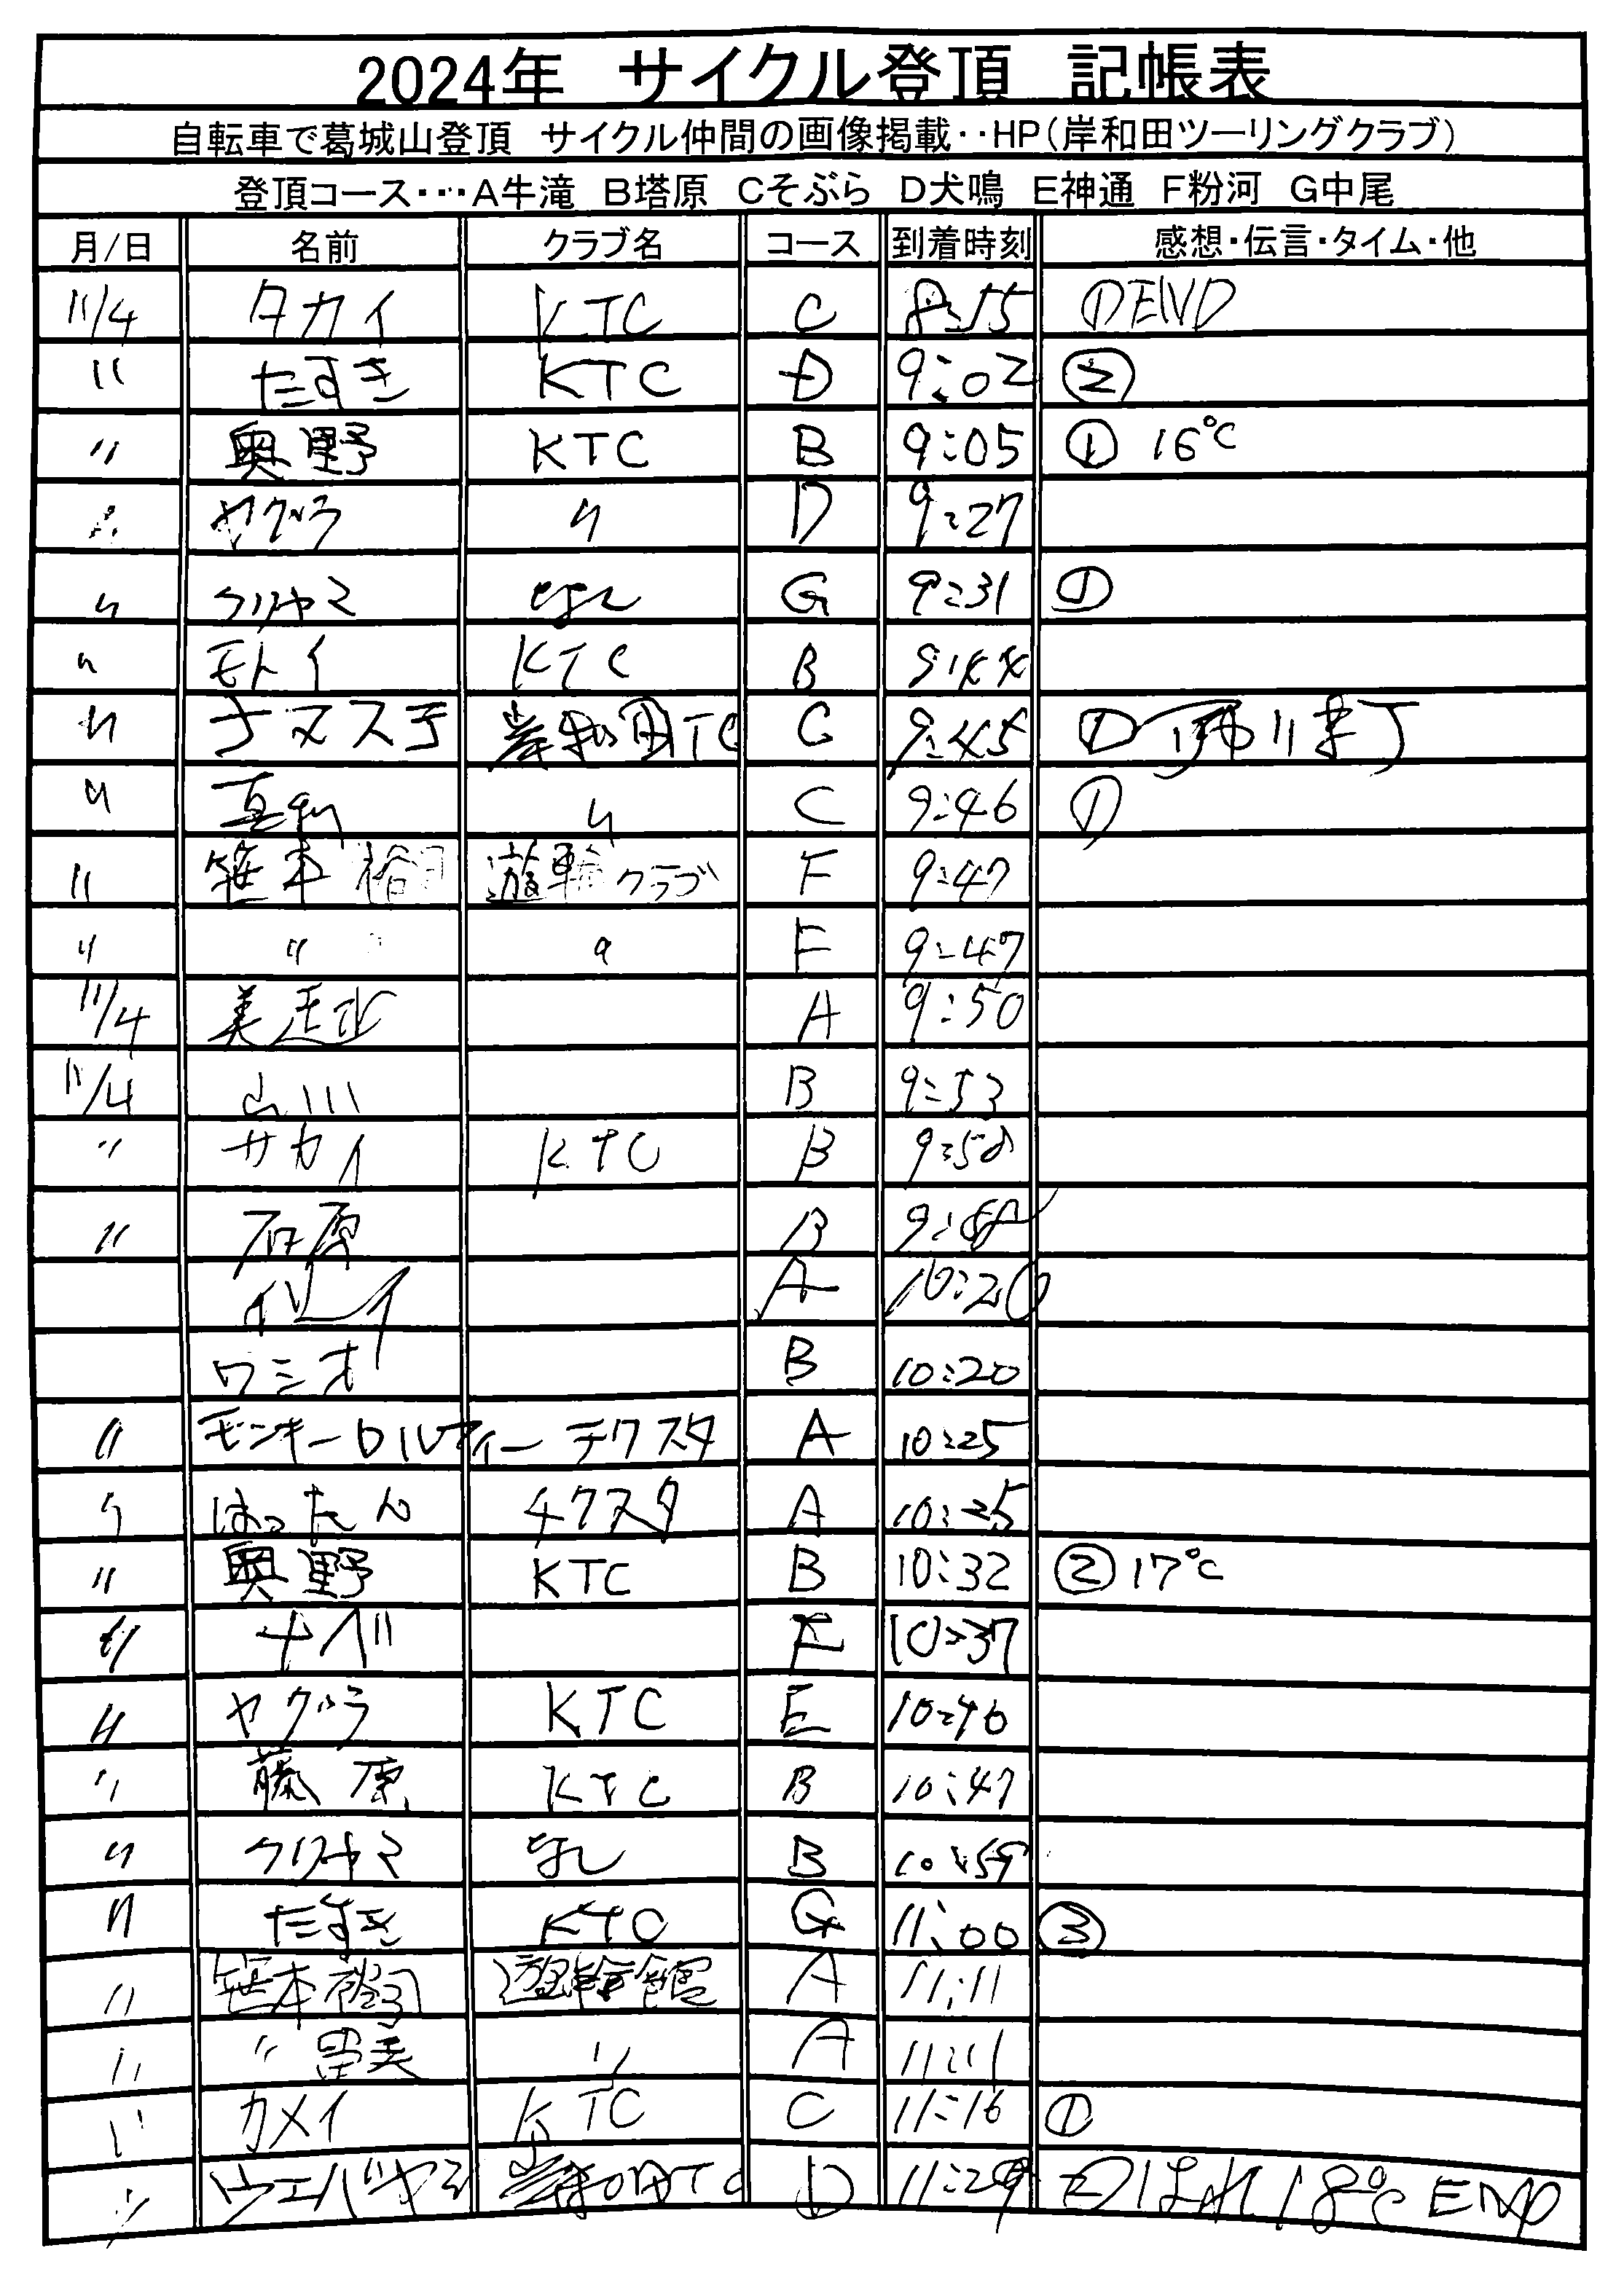 2024年 サイクル登頂 記帳表
自転車で葛城山登頂 サイクル仲間の画像掲載‥HP(岸和田ツーリングクラブ)
登頂コース･･･A牛滝 B塔原 Cそぶら D犬鳴 E神通 F粉河 G中尾
月/日 名前 クラブ名 コース 到着時刻 感想・伝言・タイム・他
11/4 タカイ KTC C 8:15 ①END
〃 たすき KTC D 9:02 ②
〃 奥野 KTC B 9:05 ① 16℃
〃 ヤグラ 〃 D 9:27
〃 クリヤマ なし G 9:31 ①
〃 モトイ KTC B 9:44
〃 ナマステ 岸和田TC C 9:45 ①
〃 真利 〃 C 9:46 ①
〃 笹本 裕司 遊輪クラブ F 9:47
〃 〃 〃 F 9:47
11/4 A 9:50
11/4 山川 B 9:53
〃 サカイ KTC B 9:58
〃 石原 B
A 10:20
ワシオ B 10:20
〃 モンキーDルフィー チクスタ A 10:25
〃 はったん チクスタ A 10:25
〃 奥野 KTC B 10:32 ② 17℃
〃 ナベ F 10:37
〃 ヤグラ KTC E 10:46
〃 藤原 KTC B 10:47
〃 クリヤマ なし B 10:59
〃 たすき KTC G 11:00 ③
〃 笹本裕司 遊輪館 A 11:11
〃 〃 留美 〃 A 11:11
〃 カメイ KTC C 11:16 ①
〃 ウエバヤシ 岸和田TC D 11:29 ②はれ 18℃ END